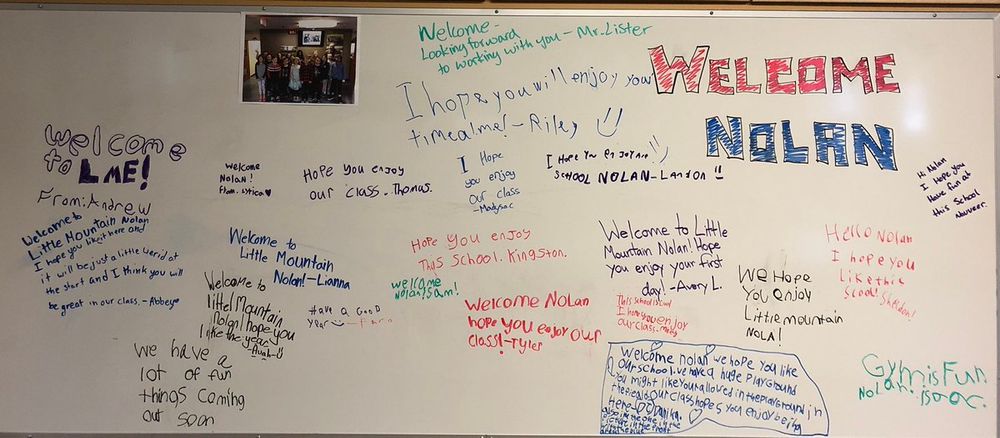 Welcome-
Looking forward
to working with you - Mr. Lister
WELCOME
NOLAN
I hope you will enjoy your
time a lme! - Riley
welcome
to LME!
From: Andrew
Welcome
Nolan!
From:
Hope you enjoy
our class - Thomas.
I Hope
you enjoy
our class
I Hope you enjoy
SCHOOL NOLAN - Landon !!
Hi Nolan
I Hope you
Have fun at
this School
Welcome to
Little Mountain Nolan
I hope you like it here and
it will be just a little weird at
the start and I think you will
be great in our class. - Abbeye
Welcome to
Little Mountain
Nolan! - Lianna
Hope you enjoy
This school. Kingston.
Welcome to Little
Mountain Nolan! Hope
you enjoy your first
day! - Avery L.
Hello Nolan
I hope you
like this
School! Sheldon!
Welcome to
littel Mountain
Nolan I hope you
like the year
Have a Good
Year
welcome
Nolan, Sam!
Welcome Nolan
hope you enjoy our
class! - Tyler
This school is
I hope you enjoy
our class -
We Hope
You enjoy
Little mountain
NOLA!
we have a
lot of fun
things coming
out soon
Welcome nolan we hope you like
our school. we have a huge playground
you might like your allowed in the playground in
the field our class hopes you enjoy being
Here
Gym is Fun.
Nolan. isaac.